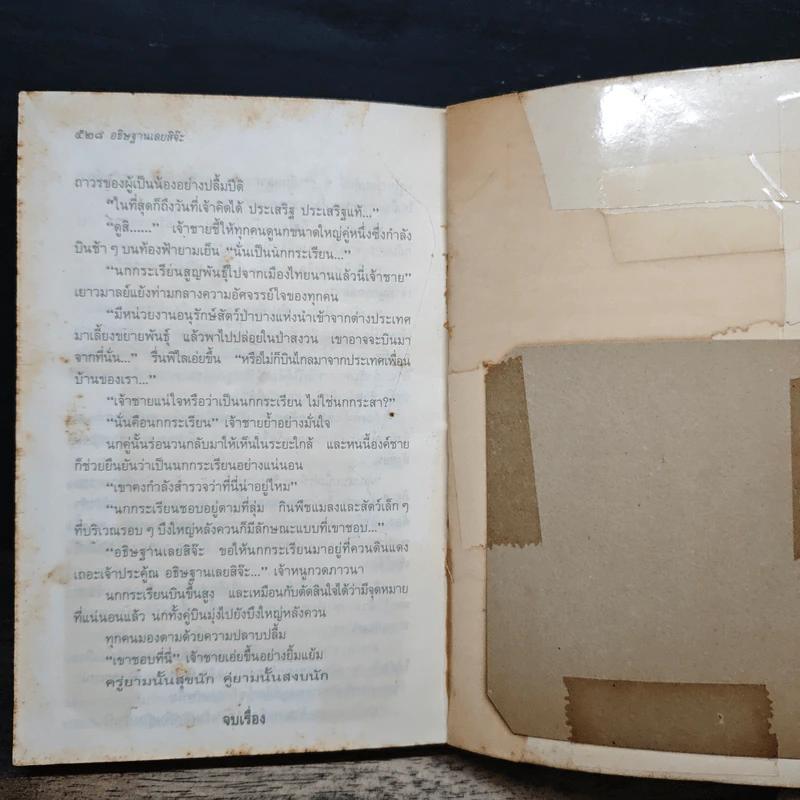 ๕๒๘ อธิษฐานเลยสิจ๊ะ
ถาวรของผู้เป็นน้องอย่างปลื้มปีติ
“ในที่สุดก็ถึงวันที่เจ้าคิดได้ ประเสริฐ ประเสริฐแท้...”
“ดูสิ......” เจ้าชายชี้ให้ทุกคนดูนกขนาดใหญ่คู่หนึ่งซึ่งกำลัง
บินช้า ๆ บนท้องฟ้ายามเย็น “นั่นเป็นนกกระเรียน...”
“นกกระเรียนสูญพันธุ์ไปจากเมืองไทยนานแล้วนี่เจ้าชาย”
เยาวมาลย์แย้งท่ามกลางความอัศจรรย์ใจของทุกคน
“มีหน่วยงานอนุรักษ์สัตว์ป่าบางแห่งนำเข้าจากต่างประเทศ
มาเลี้ยงขยายพันธุ์ แล้วพาไปปล่อยในป่าสงวน เขาอาจจะบินมา
จากที่นั่น...” รื่นพิไลเอ่ยขึ้น “หรือไม่ก็บินไกลมาจากประเทศเพื่อน
บ้านของเรา...”
“เจ้าชายแน่ใจหรือว่าเป็นนกกระเรียน ไม่ใช่นกกระสา?”
“นั่นคือนกกระเรียน” เจ้าชายย้ำอย่างมั่นใจ
นกคู่นั้นร่อนวนกลับมาให้เห็นในระยะใกล้ และหนนี้องค์ชาย
ก็ช่วยยืนยันว่าเป็นนกกระเรียนอย่างแน่นอน
“เขาคงกำลังสำรวจว่าที่นี่น่าอยู่ไหม”
“นกกระเรียนชอบอยู่ตามที่ลุ่ม กินพืชแมลงและสัตว์เล็ก ๆ
ที่บริเวณรอบ ๆ บึงใหญ่หลังควนก็มีลักษณะแบบที่เขาชอบ...”
“อธิษฐานเลยสิจ๊ะ ขอให้นกกระเรียนมาอยู่ที่ควนดินแดง
เถอะเจ้าประคู้ณ อธิษฐานเลยสิจ๊ะ...” เจ้าหนูกวดภาวนา
นกกระเรียนบินขึ้นสูง และเหมือนกับตัดสินใจได้ว่ามีจุดหมาย
ที่แน่นอนแล้ว นกทั้งคู่บินมุ่งไปยังบึงใหญ่หลังควน
ทุกคนมองตามด้วยความปลาบปลื้ม
“เขาชอบที่นี่” เจ้าชายเอ่ยขึ้นอย่างยิ้มแย้ม
ครู่ยามนั้นสุขนัก คู่ยามนั้นสงบนัก
จบเรื่อง